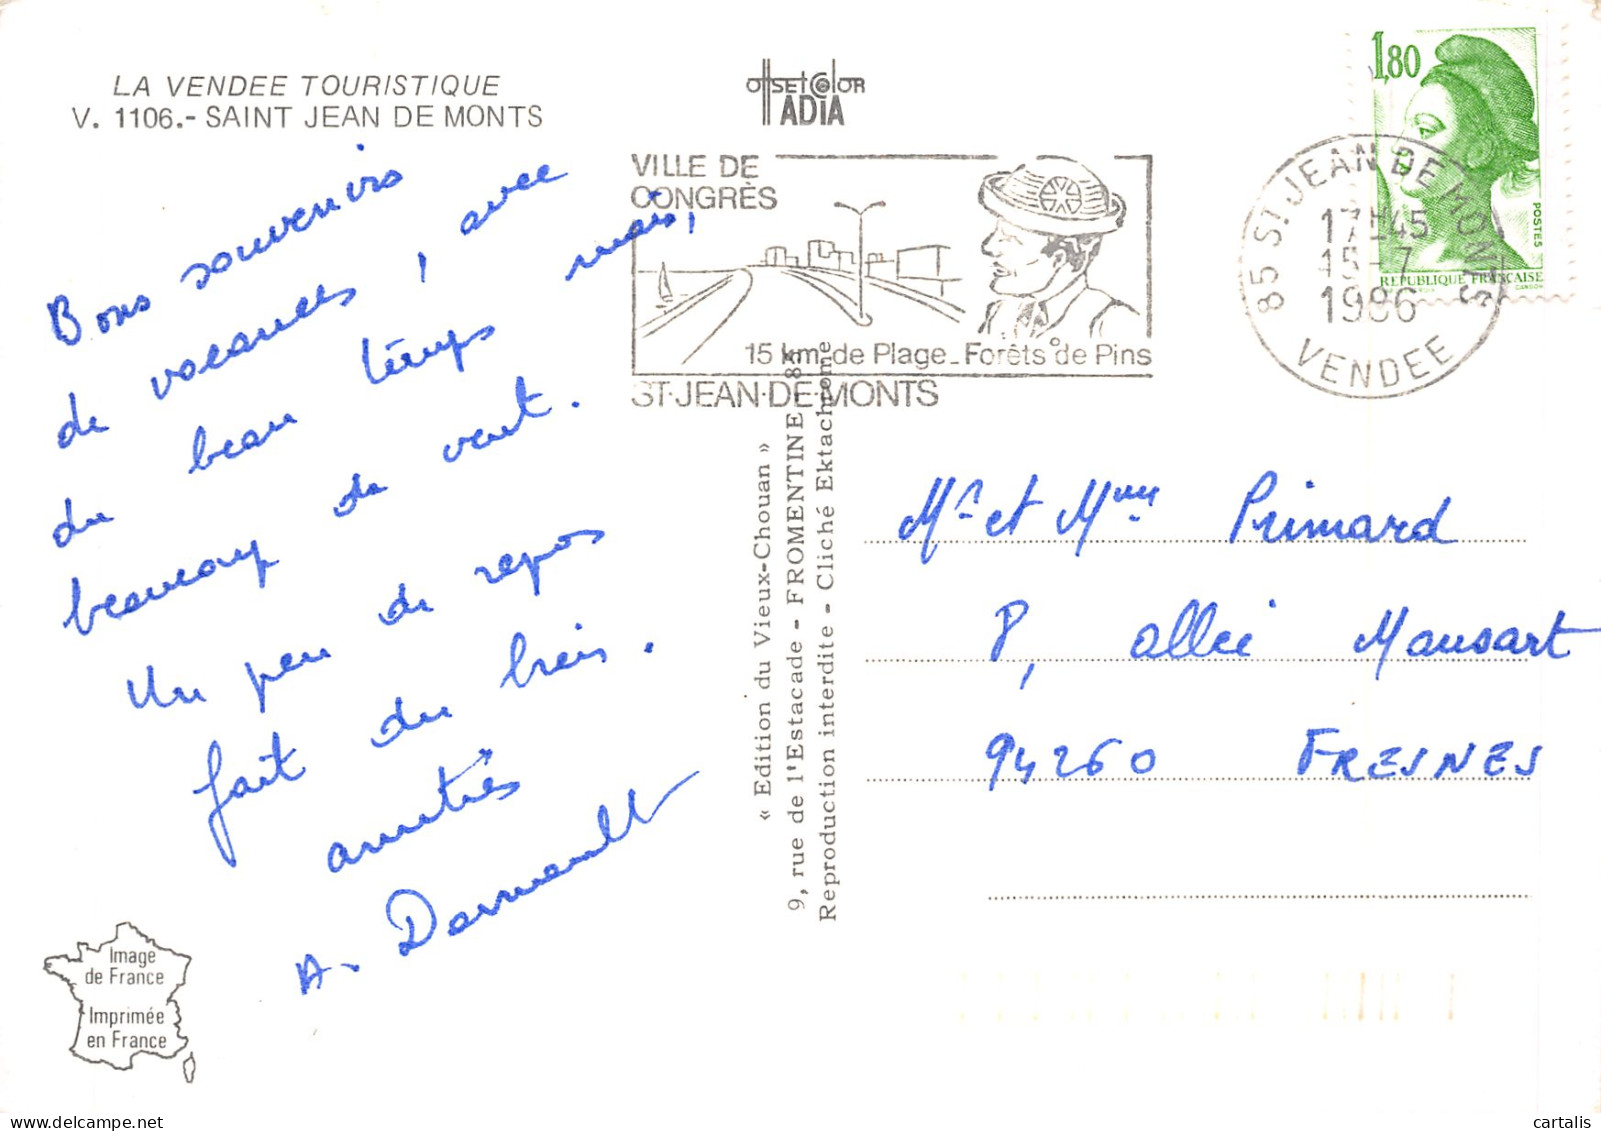 LA VENDEE TOURISTIQUE
V. 1106.- SAINT JEAN DE MONTS
OffSETCOLOR
IADIA
VILLE DE
CONGRÈS
15 km de Plage_Forêts de Pins
ST·JEAN·DE·MONTS
1,80
POSTES
REPUBLIQUE FRANÇAISE
GANDON
85 ST JEAN DE MONTS
17H45
15-7
1986
VENDEE
Bons souvenirs
de vacances, avec
du beau temps mais,
beaucoup de vent.
Un peu de repos
fait du bien.
amitiés
« Edition du Vieux-Chouan »
9, rue de l'Estacade - FROMENTINE - 85
Reproduction interdite - Cliché Ektachrome
Mr et Mme Primard
8, allée Mansart
94260 FRESNES
Image
de France
Imprimée
en France
cartalis
delcampe.net